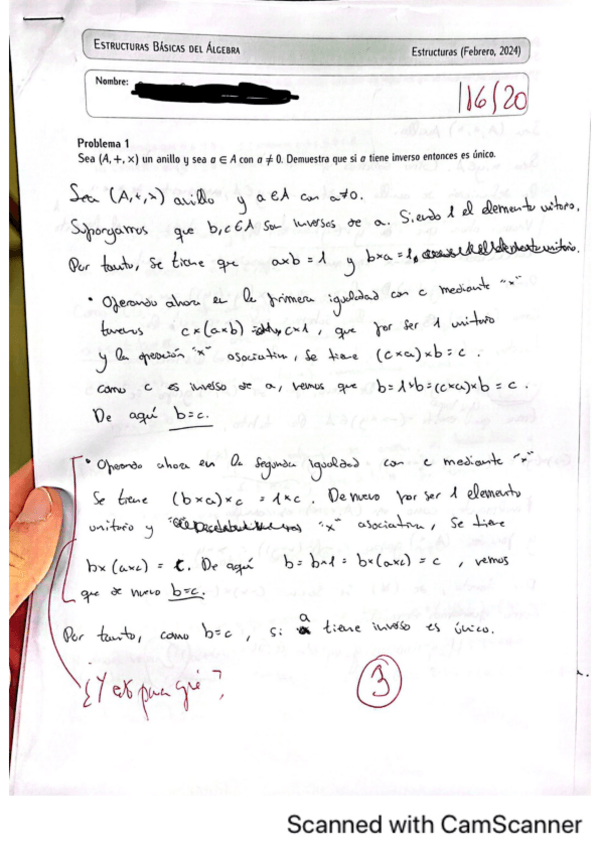 ESTRUCTURAS BÁSICAS DEL ÁLGEBRA
Estructuras (Febrero, 2024)
Nombre:
16/20
Problema 1
Sea (A, +, ×) un anillo y sea a ∈ A con a ≠ 0. Demuestra que si a tiene inverso entonces es único.
Sea (A,+,×) anillo y a∈A con a≠0.
Supongamos que b,c∈A son inversos de a. Siendo 1 el elemento unitario.
Por tanto, se tiene que a×b=1 y b×a=1,
• Operando ahora en la primera igualdad con c mediante "×"
tenemos c×(a×b) = c×1, que por ser 1 unitario
y la operación "×" asociativa, se tiene (c×a)×b=c.
como c es inverso de a, vemos que b=1×b=(c×a)×b=c.
De aquí b=c.
• Operando ahora en la segunda igualdad con c mediante "×"
Se tiene (b×a)×c = 1×c. De nuevo por ser 1 elemento
unitario y "×" asociativa, se tiene
b×(a×c) = c. De aquí b=b×1=b×(a×c)=c, vemos
que de nuevo b=c.
Por tanto, como b=c, si a tiene inverso es único.
¿Y esto para qué?
3
Scanned with CamScanner